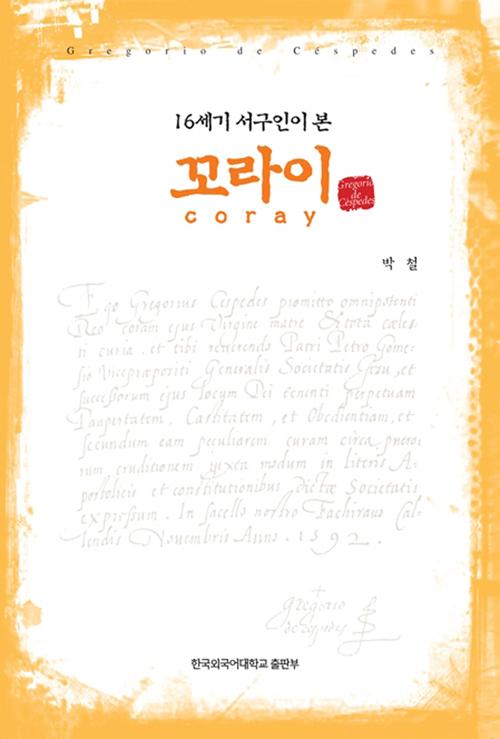 Gregorio de Céspedes
16세기 서구인이 본
꼬라이
Gregorio
de
Céspedes
coray
박 철
Ego Gregorius Céspedes promitto omnipotenti
Deo coram ejus Virgine matre & tota cæles-
ti curia, et tibi reverendo Patri Petro Gome-
sio Vicepræposito Generalis Societatis Jesu, et
successorum ejus locum Dei tenenti perpetuam
Paupertatem, Castitatem, et Obedientiam, et
secundum eam peculiarem curam circa puero-
rum eruditionem juxta modum in literis A-
postolicis et constitutionibus dictæ Societatis
expressum. In sacello nostro
Cal-
lendis Novembris Anno. 1592.
gregorio
de cespedes
한국외국어대학교 출판부